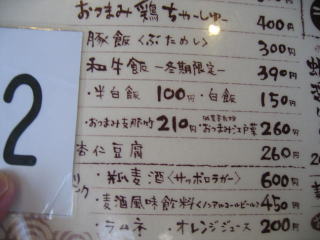 おつまみ鶏ちゃーしゅー 400円
豚飯〈ぶためし〉 300円
和牛飯 -冬期限定- 390円
・半白飯 100円・白飯 150円
・おつまみ支那竹 210円・おつまみ江戸菜 260円
杏仁豆腐 260円
麦酒〈サッポロラガー〉 600円
・麦酒風味飲料〈ノンアルコールビール〉 450円
・ラムネ ・オレンジジュース 200円
2